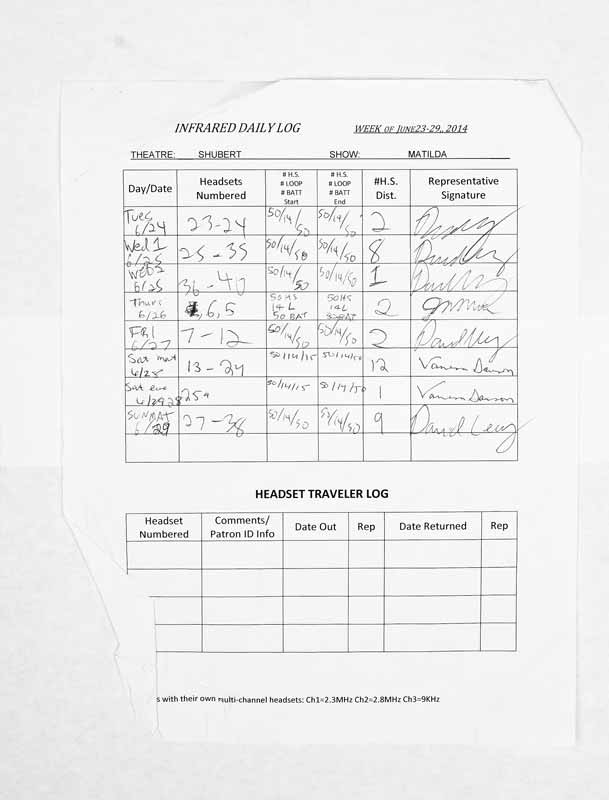 INFRARED DAILY LOG WEEK OF JUNE23-29,, 2014
THEATRE: SHUBERT SHOW: MATILDA
Day/Date
Headsets
Numbered
# H.S.
# LOOP
# BATT
Start
# H.S.
# LOOP
# BATT
End
#H.S.
Dist.
Representative
Signature
Tues
6/24
23-24
50/14/50
50/14/50
2
Wed 1
6/25
25-35
50/14/50
50/14/50
8
Wed 2
6/25
36-40
50/14/50
50/14/50
1
Thurs
6/26
6, 5
50 HS
14 L
50 BAT
50 HS
14L
50BAT
2
FRI
6/27
7-12
50/14/50
50/14/50
2
David Levy
Sat mat
6/28
13-24
50/14/15
50/14/50
12
Vanessa Dawson
Sat eve
6/28
25
50/14/15
50/14/50
1
Vanessa Dawson
SUNMAT
6/29
27-38
50/14/50
50/14/50
9
David Levy
HEADSET TRAVELER LOG
Headset
Numbered
Comments/
Patron ID Info
Date Out
Rep
Date Returned
Rep
s with their own multi-channel headsets: Ch1=2.3MHz Ch2=2.8MHz Ch3=9KHz